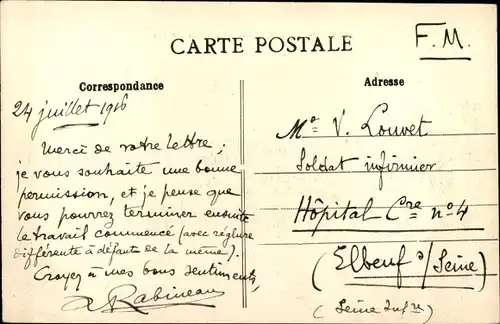 CARTE POSTALE
F.M.
Correspondance
24 juillet 1916
Merci de votre lettre;
je vous souhaite une bonne
permission, et je pense que
vous pourrez terminer ensuite
le travail commencé (avec réglure
différente à défaut de la même).
Croyez à mes bons sentiments,
Rabineau
Adresse
V. Louvet
Soldat infirmier
Hôpital Cre n°4
(Elbeuf s/Seine)
(Seine Infre)